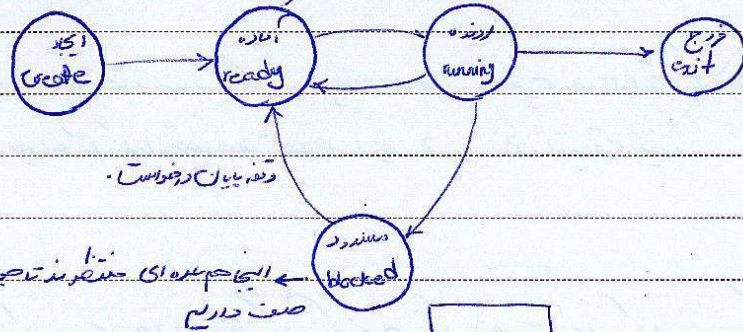 ایجاد
create
آماده
ready
running
خروج
exit
وقفه پایان درخواست.
مسدود
blocked
← اینجا هم عده ای منتظرند تا
صف داریم